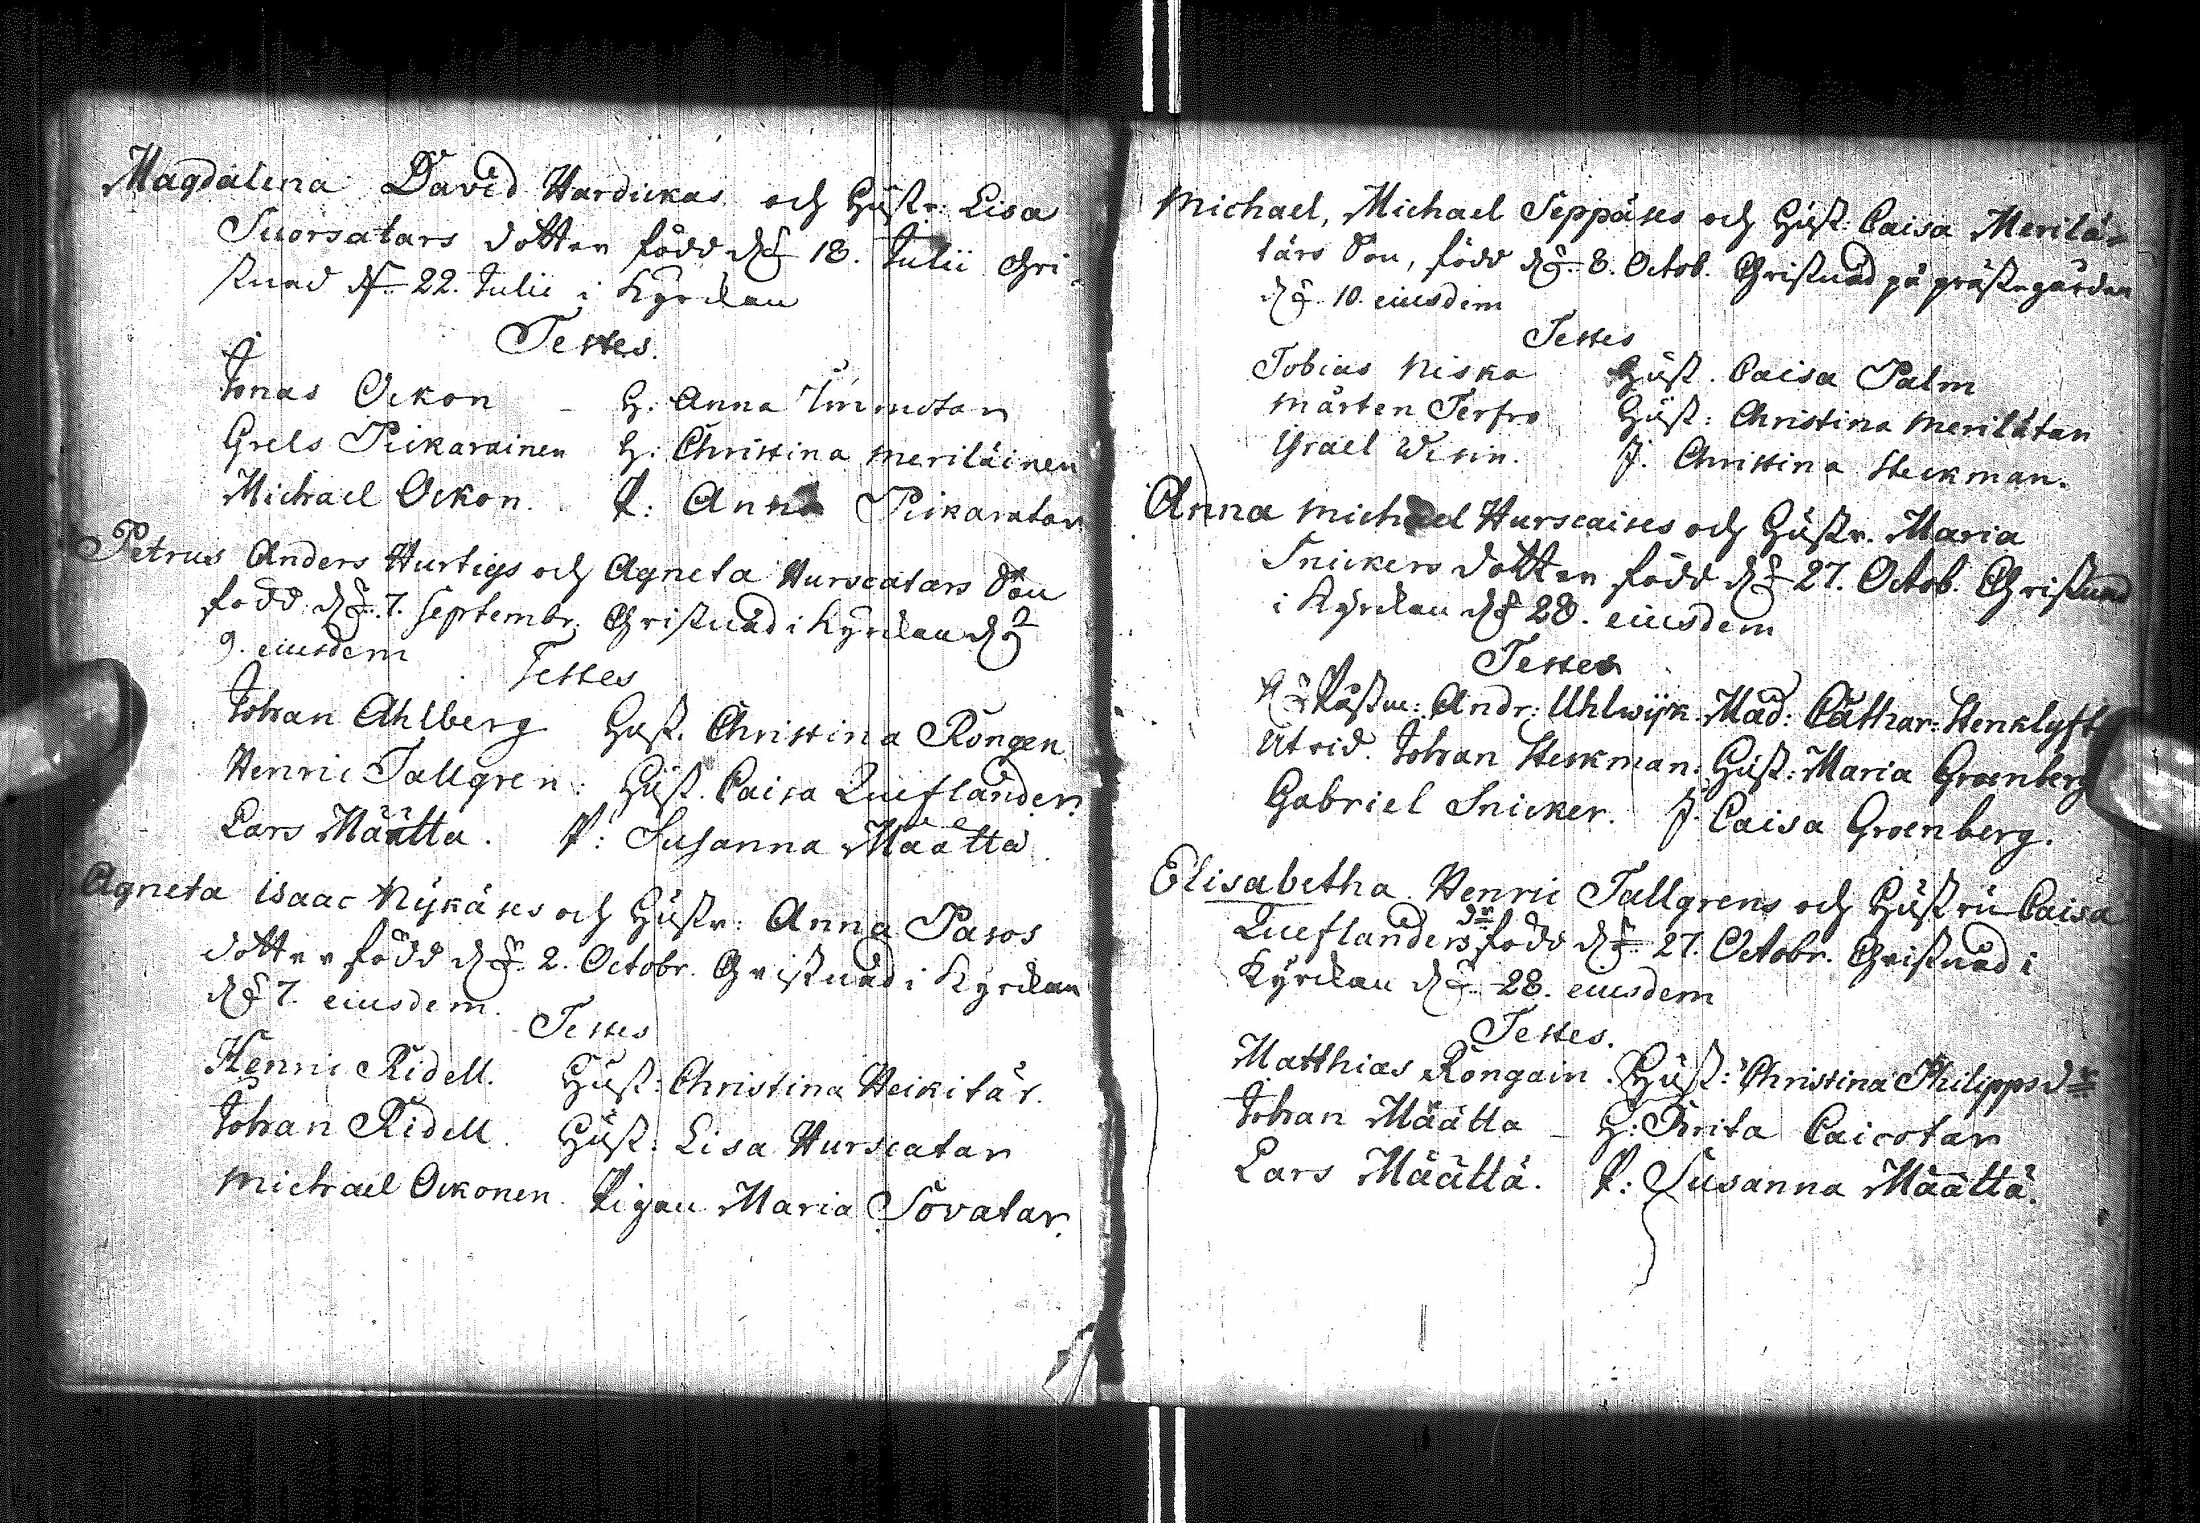 Magdalena David Hardickas och Hustr: Lisa
Suorsatars dotter född den 18. Julii Chri
stnad den 22. Julii i Kyrckan
Testes.
Jonas Ockon H: Anna Immotar
Grels Pikarainen H: Christina Meriläinen
Michael Ockon. P: Anna Pikaratar
Petrus Anders Hurtigs och Agneta Hurscatars Son
född den 7. Septembr. Christnad i Kyrckan den
9. eiusdem Testes
Johan Ahlberg Hust. Christina Rongen
Henric Tallgren: Hust. Caisa Queflander.
Lars Määtta. P: Susanna Määttä.
Agneta Isaac Nykäses och Hustr: Anna Pasos
dotter född den 2. Octobr. Christnad i Kyrckan
den 7. eiusdem.
Testes
Henric Ridell. Hust: Christina Heikitär.
Johan Ridell. Hust: Lisa Hurscatar
Michael Ockonen. Pigan Maria Sovatar.
Michael, Michael Seppäses och Hust: Caisa Merilä
tärs Son, född den 8. Octob. Christnad på prästegården
den 10. eiusdem
Testes
Tobias Niska Hust. Caisa Palm
Mårten Terfro Hust: Christina Merilätar
Israel Wesin. J. Christina Heckman.
Anna Michael Hurscaises och Hustr. Maria
Snickers dotter född den 27. Octob. Christnad
i Kyrckan den 28. eiusdem
Testes
Andr: Uhlwijk. Mad: Cathar: Henklyft
Utrid. Johan Heckman. Hust: Maria Groenberg
Gabriel Snicker. J. Caisa Groenberg.
Elisabetha Henric Tallgrens och Hustru Caisa
Queflanders dr född den 27. Octobr. Christnad i
Kyrckan den 28. eiusdem
Testes.
Matthias Rongain. Hust: Christina Philippsdr
Johan Määtta H: Brita Caicotar
Lars Määttä. P: Susanna Määttä.